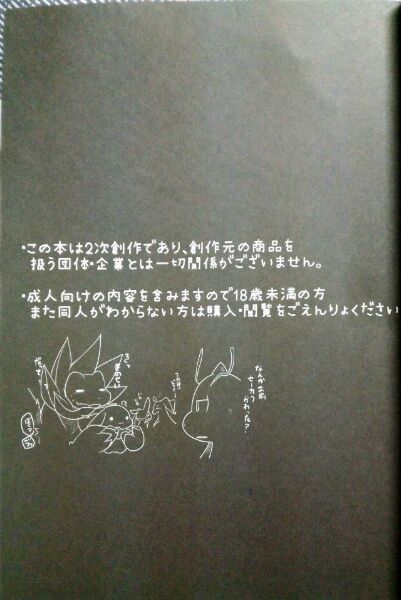 ・この本は2次創作であり、創作元の商品を
扱う団体・企業とは一切関係がございません。
・成人向けの内容を含みますので18歳未満の方
また同人がわからない方は購入・閲覧をごえんりょください
だって
なんかお前
せーかく
かわった?